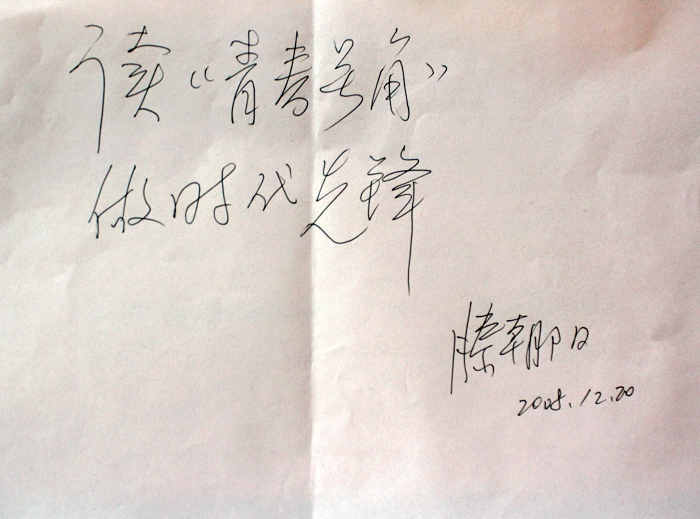 读“青春号角”
做时代先锋
滕朝阳
2008.12.20